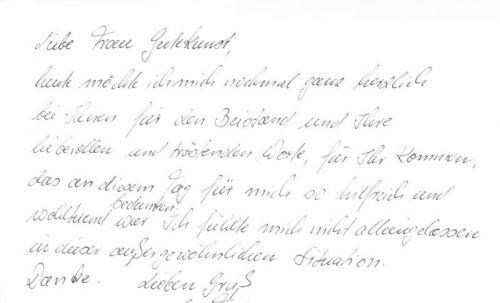 Liebe Frau Gutekunst,
heute möchte ich mich nochmal ganz herzlich
bei Ihnen für den Beistand und Ihre
liebevollen und tröstenden Worte, für Ihr Kommen,
das an diesem Tag für mich so hilfreich und
wohltuend bedanken. war. Ich fühlte mich nicht alleingelassen
in dieser außergewöhnlichen Situation.
Danke. Lieben Gruß